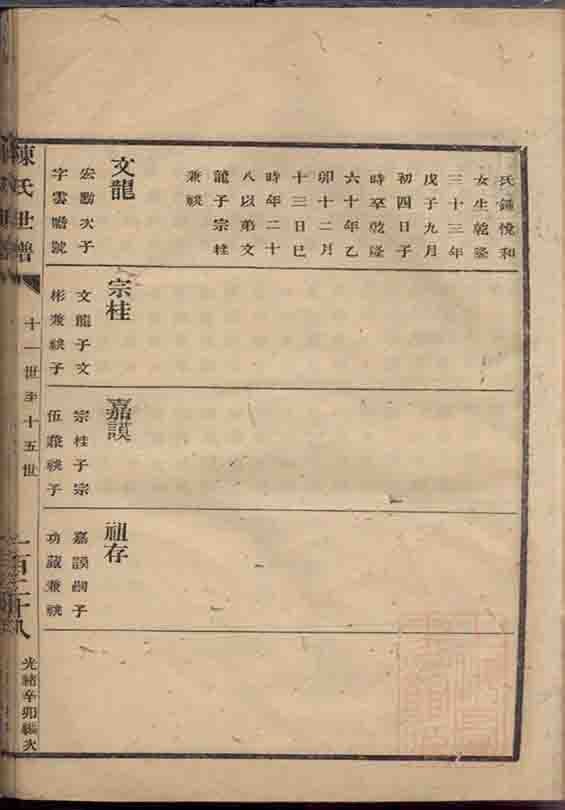 氏鍾悅和
女生乾隆
三十三年
戊子九月
初四日子
時卒乾隆
六十年乙
卯十二月
十三日巳
時年二十
八以弟文
龍子宗桂
兼祧
文龍
宏勳次子
字雲瞻號
宗桂
文龍子文
彬兼祧子
嘉謨
宗桂子宗
伍兼祧子
祖存
嘉謨嗣子
功蔵兼祧
陳氏世譜
十一世至十五世
一百二十八
光緒辛卯編次